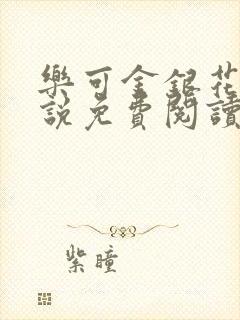 樂可金銀花
說免費閱讀
紫瞳